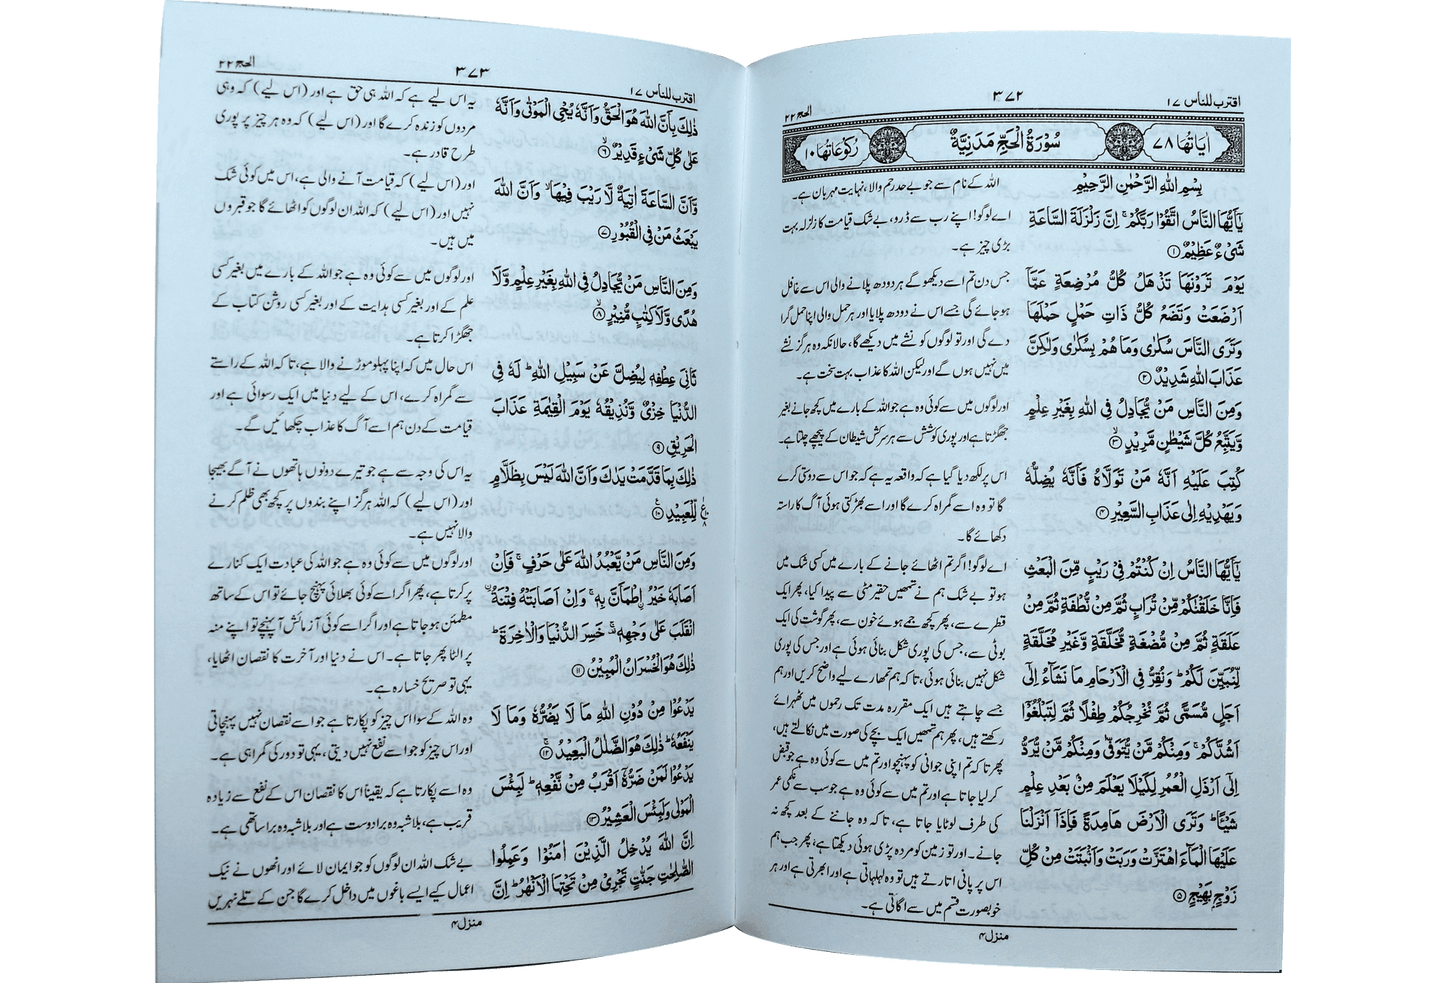 اقترب للناس ١٧
٣٧٢
الحج ٢٢
اٰيَاتُهَا ٧٨
سُوْرَةُ الْحَجِّ مَدَنِيَّةٌ
رُكُوْعَاتُهَا ١٠
بِسْمِ اللّٰهِ الرَّحْمٰنِ الرَّحِيْمِ
يٰۤاَيُّهَا النَّاسُ اتَّقُوْا رَبَّكُمْ ۚ اِنَّ زَلْزَلَةَ السَّاعَةِ
شَیْءٌ عَظِيْمٌ ①
يَوْمَ تَرَوْنَهَا تَذْهَلُ كُلُّ مُرْضِعَةٍ عَمَّاۤ
اَرْضَعَتْ وَتَضَعُ كُلُّ ذَاتِ حَمْلٍ حَمْلَهَا
وَتَرَى النَّاسَ سُكٰرٰى وَمَا هُمْ بِسُكٰرٰى وَلٰكِنَّ
عَذَابَ اللّٰهِ شَدِيْدٌ ②
وَمِنَ النَّاسِ مَنْ يُّجَادِلُ فِی اللّٰهِ بِغَيْرِ عِلْمٍ
وَّيَتَّبِعُ كُلَّ شَيْطٰنٍ مَّرِيْدٍ ③
كُتِبَ عَلَيْهِ اَنَّهٗ مَنْ تَوَلَّاهُ فَاَنَّهٗ يُضِلُّهٗ
وَيَهْدِيْهِ اِلٰى عَذَابِ السَّعِيْرِ ④
يٰۤاَيُّهَا النَّاسُ اِنْ كُنْتُمْ فِیْ رَيْبٍ مِّنَ الْبَعْثِ
فَاِنَّا خَلَقْنٰكُمْ مِّنْ تُرَابٍ ثُمَّ مِنْ نُّطْفَةٍ ثُمَّ مِنْ
عَلَقَةٍ ثُمَّ مِنْ مُّضْغَةٍ مُّخَلَّقَةٍ وَّغَيْرِ مُخَلَّقَةٍ
لِّنُبَيِّنَ لَكُمْ ؕ وَنُقِرُّ فِی الْاَرْحَامِ مَا نَشَآءُ اِلٰۤى
اَجَلٍ مُّسَمًّى ثُمَّ نُخْرِجُكُمْ طِفْلًا ثُمَّ لِتَبْلُغُوْۤا
اَشُدَّكُمْ ۚ وَمِنْكُمْ مَّنْ يُّتَوَفّٰى وَمِنْكُمْ مَّنْ يُّرَدُّ
اِلٰۤى اَرْذَلِ الْعُمُرِ لِكَيْلَا يَعْلَمَ مِنْۢ بَعْدِ عِلْمٍ
شَيْئًا ؕ وَتَرَى الْاَرْضَ هَامِدَةً فَاِذَاۤ اَنْزَلْنَا
عَلَيْهَا الْمَآءَ اهْتَزَّتْ وَرَبَتْ وَاَنْۢبَتَتْ مِنْ كُلِّ
زَوْجٍۭ بَهِيْجٍ ⑤
اللہ کے نام سے جو بے حد رحم والا، نہایت مہربان ہے۔
اے لوگو! اپنے رب سے ڈرو، بے شک قیامت کا زلزلہ بہت
بڑی چیز ہے۔
جس دن تم اسے دیکھو گے ہر دودھ پلانے والی اس سے غافل
ہو جائے گی جسے اس نے دودھ پلایا اور ہر حمل والی اپنا حمل گرا
دے گی اور تو لوگوں کو نشے میں دیکھے گا، حالانکہ وہ ہرگز نشے
میں نہیں ہوں گے اور لیکن اللہ کا عذاب بہت سخت ہے۔
اور لوگوں میں سے کوئی وہ ہے جو اللہ کے بارے میں کچھ جانے بغیر
جھگڑتا ہے اور پوری کوشش سے ہر سرکش شیطان کے پیچھے چلتا ہے۔
اس پر لکھ دیا گیا ہے کہ واقعہ یہ ہے کہ جو اس سے دوستی کرے
گا تو وہ اسے گمراہ کرے گا اور اسے بھڑکتی ہوئی آگ کا راستہ
دکھائے گا۔
اے لوگو! اگر تم اٹھائے جانے کے بارے میں کسی شک میں
ہو تو بے شک ہم نے تمھیں حقیر مٹی سے پیدا کیا، پھر ایک
قطرے سے، پھر کچھ جمے ہوئے خون سے، پھر گوشت کی ایک
بوٹی سے، جس کی پوری شکل بنائی ہوئی ہے اور جس کی پوری
شکل نہیں بنائی ہوئی، تاکہ ہم تمھارے لیے واضح کریں اور ہم
جسے چاہتے ہیں ایک مقررہ مدت تک رحموں میں ٹھہرائے
رکھتے ہیں، پھر ہم تمھیں ایک بچے کی صورت میں نکالتے ہیں،
پھر تا کہ تم اپنی جوانی کو پہنچو اور تم میں سے کوئی وہ ہے جو قبض
کر لیا جاتا ہے اور تم میں سے کوئی وہ ہے جو سب سے نکمی عمر
کی طرف لوٹایا جاتا ہے، تاکہ وہ جاننے کے بعد کچھ نہ
جانے۔ اور تو زمین کو مردہ پڑی ہوئی دیکھتا ہے، پھر جب ہم
اس پر پانی اتارتے ہیں تو وہ لہلہاتی ہے اور ابھرتی ہے اور ہر
خوبصورت قسم میں سے اگاتی ہے۔
منزل ۴
اقترب للناس ١٧
٣٧٣
الحج ٢٢
ذٰلِكَ بِاَنَّ اللّٰهَ هُوَ الْحَقُّ وَاَنَّهٗ يُحْیِ الْمَوْتٰى وَاَنَّهٗ
عَلٰى كُلِّ شَیْءٍ قَدِيْرٌ ⑥
وَّاَنَّ السَّاعَةَ اٰتِيَةٌ لَّا رَيْبَ فِيْهَا ۙ وَاَنَّ اللّٰهَ
يَبْعَثُ مَنْ فِی الْقُبُوْرِ ⑦
وَمِنَ النَّاسِ مَنْ يُّجَادِلُ فِی اللّٰهِ بِغَيْرِ عِلْمٍ وَّلَا
هُدًى وَّلَا كِتٰبٍ مُّنِيْرٍ ⑧
ثَانِیَ عِطْفِهٖ لِيُضِلَّ عَنْ سَبِيْلِ اللّٰهِ ؕ لَهٗ فِی
الدُّنْيَا خِزْیٌ وَّنُذِيْقُهٗ يَوْمَ الْقِيٰمَةِ عَذَابَ
الْحَرِيْقِ ⑨
ذٰلِكَ بِمَا قَدَّمَتْ يَدٰكَ وَاَنَّ اللّٰهَ لَيْسَ بِظَلَّامٍ
لِّلْعَبِيْدِ ⑩
وَمِنَ النَّاسِ مَنْ يَّعْبُدُ اللّٰهَ عَلٰى حَرْفٍ ۚ فَاِنْ
اَصَابَهٗ خَيْرُ ۨاطْمَاَنَّ بِهٖ ۚ وَاِنْ اَصَابَتْهُ فِتْنَةُ ۨ
انْقَلَبَ عَلٰى وَجْهِهٖ ۚ خَسِرَ الدُّنْيَا وَالْاٰخِرَةَ ؕ
ذٰلِكَ هُوَ الْخُسْرَانُ الْمُبِيْنُ ⑪
يَدْعُوْا مِنْ دُوْنِ اللّٰهِ مَا لَا يَضُرُّهٗ وَمَا لَا
يَنْفَعُهٗ ؕ ذٰلِكَ هُوَ الضَّلٰلُ الْبَعِيْدُ ⑫
يَدْعُوْا لَمَنْ ضَرُّهٗۤ اَقْرَبُ مِنْ نَّفْعِهٖ ؕ لَبِئْسَ
الْمَوْلٰى وَلَبِئْسَ الْعَشِيْرُ ⑬
اِنَّ اللّٰهَ يُدْخِلُ الَّذِيْنَ اٰمَنُوْا وَعَمِلُوا
الصّٰلِحٰتِ جَنّٰتٍ تَجْرِیْ مِنْ تَحْتِهَا الْاَنْهٰرُ ؕ اِنَّ
یہ اس لیے ہے کہ اللہ ہی حق ہے اور (اس لیے) کہ وہی
مردوں کو زندہ کرے گا اور (اس لیے) کہ وہ ہر چیز پر پوری
طرح قادر ہے۔
اور (اس لیے) کہ قیامت آنے والی ہے، اس میں کوئی شک
نہیں اور (اس لیے) کہ اللہ ان لوگوں کو اٹھائے گا جو قبروں
میں ہیں۔
اور لوگوں میں سے کوئی وہ ہے جو اللہ کے بارے میں بغیر کسی
علم کے اور بغیر کسی ہدایت کے اور بغیر کسی روشن کتاب کے
جھگڑا کرتا ہے۔
اس حال میں کہ اپنا پہلو موڑنے والا ہے، تاکہ اللہ کے راستے
سے گمراہ کرے، اس کے لیے دنیا میں ایک رسوائی ہے اور
قیامت کے دن ہم اسے آگ کا عذاب چکھائیں گے۔
یہ اس کی وجہ سے ہے جو تیرے دونوں ہاتھوں نے آگے بھیجا
اور (اس لیے) کہ اللہ ہرگز اپنے بندوں پر کچھ بھی ظلم کرنے
والا نہیں ہے۔
اور لوگوں میں سے کوئی وہ ہے جو اللہ کی عبادت ایک کنارے
پر کرتا ہے، پھر اگر اسے کوئی بھلائی پہنچ جائے تو اس کے ساتھ
مطمئن ہو جاتا ہے اور اگر اسے کوئی آزمائش آ پہنچے تو اپنے منہ
پر الٹا پھر جاتا ہے۔ اس نے دنیا اور آخرت کا نقصان اٹھایا،
یہی تو صریح خسارہ ہے۔
وہ اللہ کے سوا اس چیز کو پکارتا ہے جو اسے نقصان نہیں پہنچاتی
اور اس چیز کو جو اسے نفع نہیں دیتی، یہی تو دور کی گمراہی ہے۔
وہ اسے پکارتا ہے کہ یقیناً اس کا نقصان اس کے نفع سے زیادہ
قریب ہے، بلاشبہ وہ برا دوست ہے اور بلاشبہ وہ برا ساتھی ہے۔
بے شک اللہ ان لوگوں کو جو ایمان لائے اور انھوں نے نیک
اعمال کیے ایسے باغوں میں داخل کرے گا جن کے تلے نہریں
منزل ۴